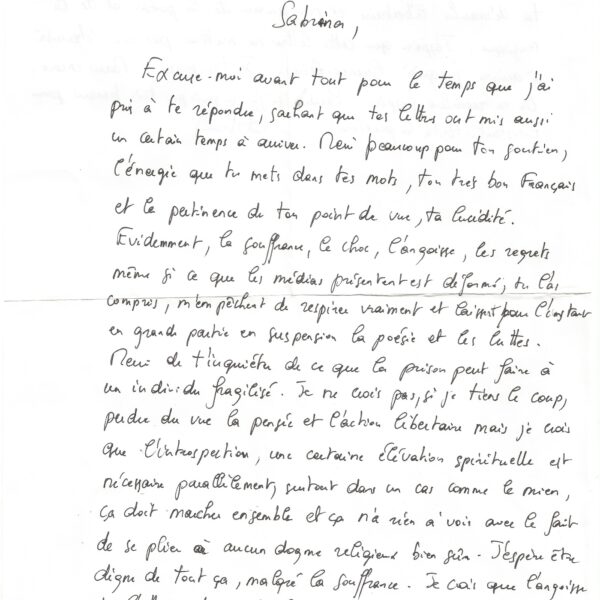 Sabrina,
Excuse-moi avant tout pour le temps que j'ai
pris à te répondre, sachant que tes lettres ont mis aussi
un certain temps à arriver. Merci beaucoup pour ton soutien,
l'énergie que tu mets dans tes mots, ton très bon Français
et la pertinence de ton point de vue, ta lucidité.
Evidemment, la souffrance, le choc, l'angoisse, les regrets
même si ce que les médias présentent est déformé, tu l'as
compris, m'empêchent de respirer vraiment et laissent pour l'instant
en grande partie en suspension la poésie et les luttes.
Merci de t'inquiéter de ce que la prison peut faire à
un individu fragilisé. Je ne crois pas, si je tiens le coup,
perdre du vue la pensée et l'action libertaire mais je crois
que l'introspection, une certaine élévation spirituelle est
nécessaire parallèlement, surtout dans un cas comme le mien,
ça doit marcher ensemble et ça n'a rien à voir avec le fait
de se plier à aucun dogme religieux bien sûr. J'espère être
digne de tout ça, malgré la souffrance. Je crois que l'angoisse